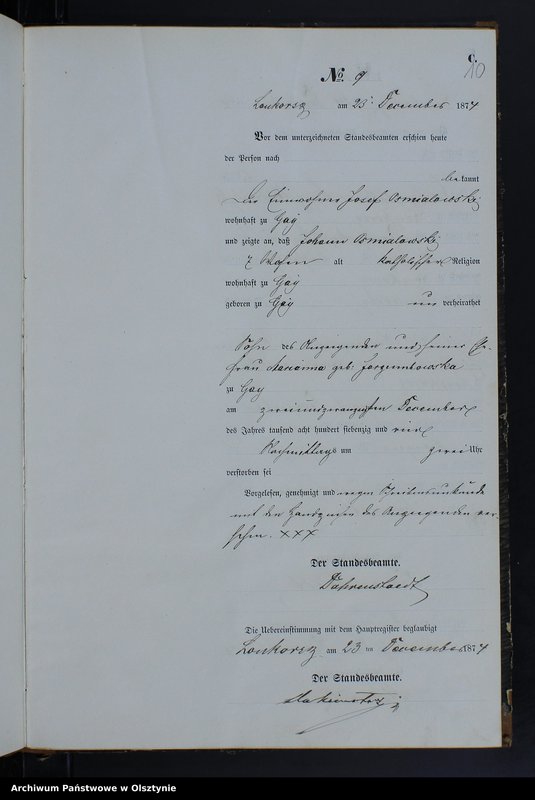 C.
10
No. 9
Lonkorsz am 23. December 1874
Vor dem unterzeichneten Standesbeamten erschien heute
der Person nach
bekannt
Der Einwohner Josef Osmialowski
wohnhaft zu Gay
und zeigte an, daß Johann Osmialowski
7 Wochen alt katholischer Religion
wohnhaft zu Gay
geboren zu Gay unverheirathet
Sohn des Anzeigenden und seiner Ehe-
frau Marianna geb.
zu Gay
am zweiundzwanzigsten December
des Jahres tausend acht hundert siebenzig und vier
Nachmittags um zwei Uhr
verstorben sei
Vorgelesen, genehmigt und wegen Schreibensunkunde
mit den Handzeichen des Anzeigenden ver-
sehen. XXX
Der Standesbeamte.
Die Uebereinstimmung mit dem Hauptregister beglaubigt
Lonkorsz am 23 ten December 1874
Der Standesbeamte.
Archiwum Państwowe w Olsztynie